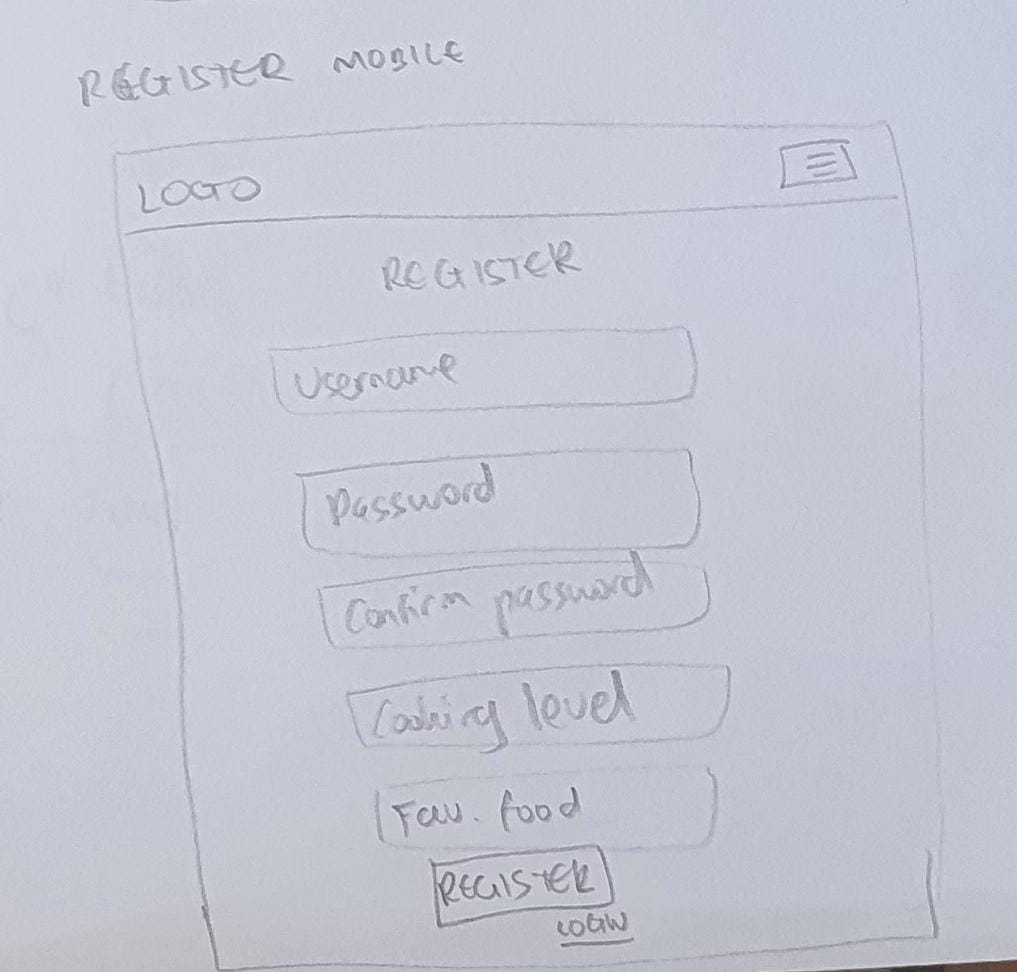 REGISTER MOBILE
LOGO
REGISTER
Username
Password
Confirm password
Cooking level
Fav. food
REGISTER
LOGIN